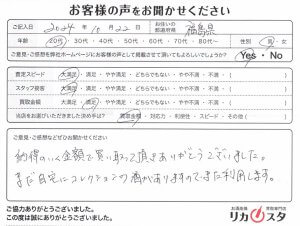 お客様の声をお聞かせください
記入日 2024年 10月 22日 お住いの都道府県 福島県
年齢 20代・30代・40代・50代・60代・70代・80代～ 性別 男・女
ご意見・ご感想を弊社ホームページにお客様の声として掲載させて頂いてもよろしいでしょうか? Yes・No
査定スピード 大満足・満足・やや満足・どちらでもない・やや不満・不満・( )
スタッフ接客 大満足・満足・やや満足・どちらでもない・やや不満・不満・( )
買取金額 大満足・満足・やや満足・どちらでもない・やや不満・不満・( )
当店をお選びいただきました決め手は? 買取金額・対応力・利便性・スピード・その他( )
ご意見・ご感想などぜひお聞かせください
納得のいく金額で買い取って頂きありがとうございました。
まだ自宅にコレクションの酒がありますのでまた利用します。
ご協力ありがとうございました。
この度は誠にありがとうございました。
お酒高価 買取専門店
リカスタ